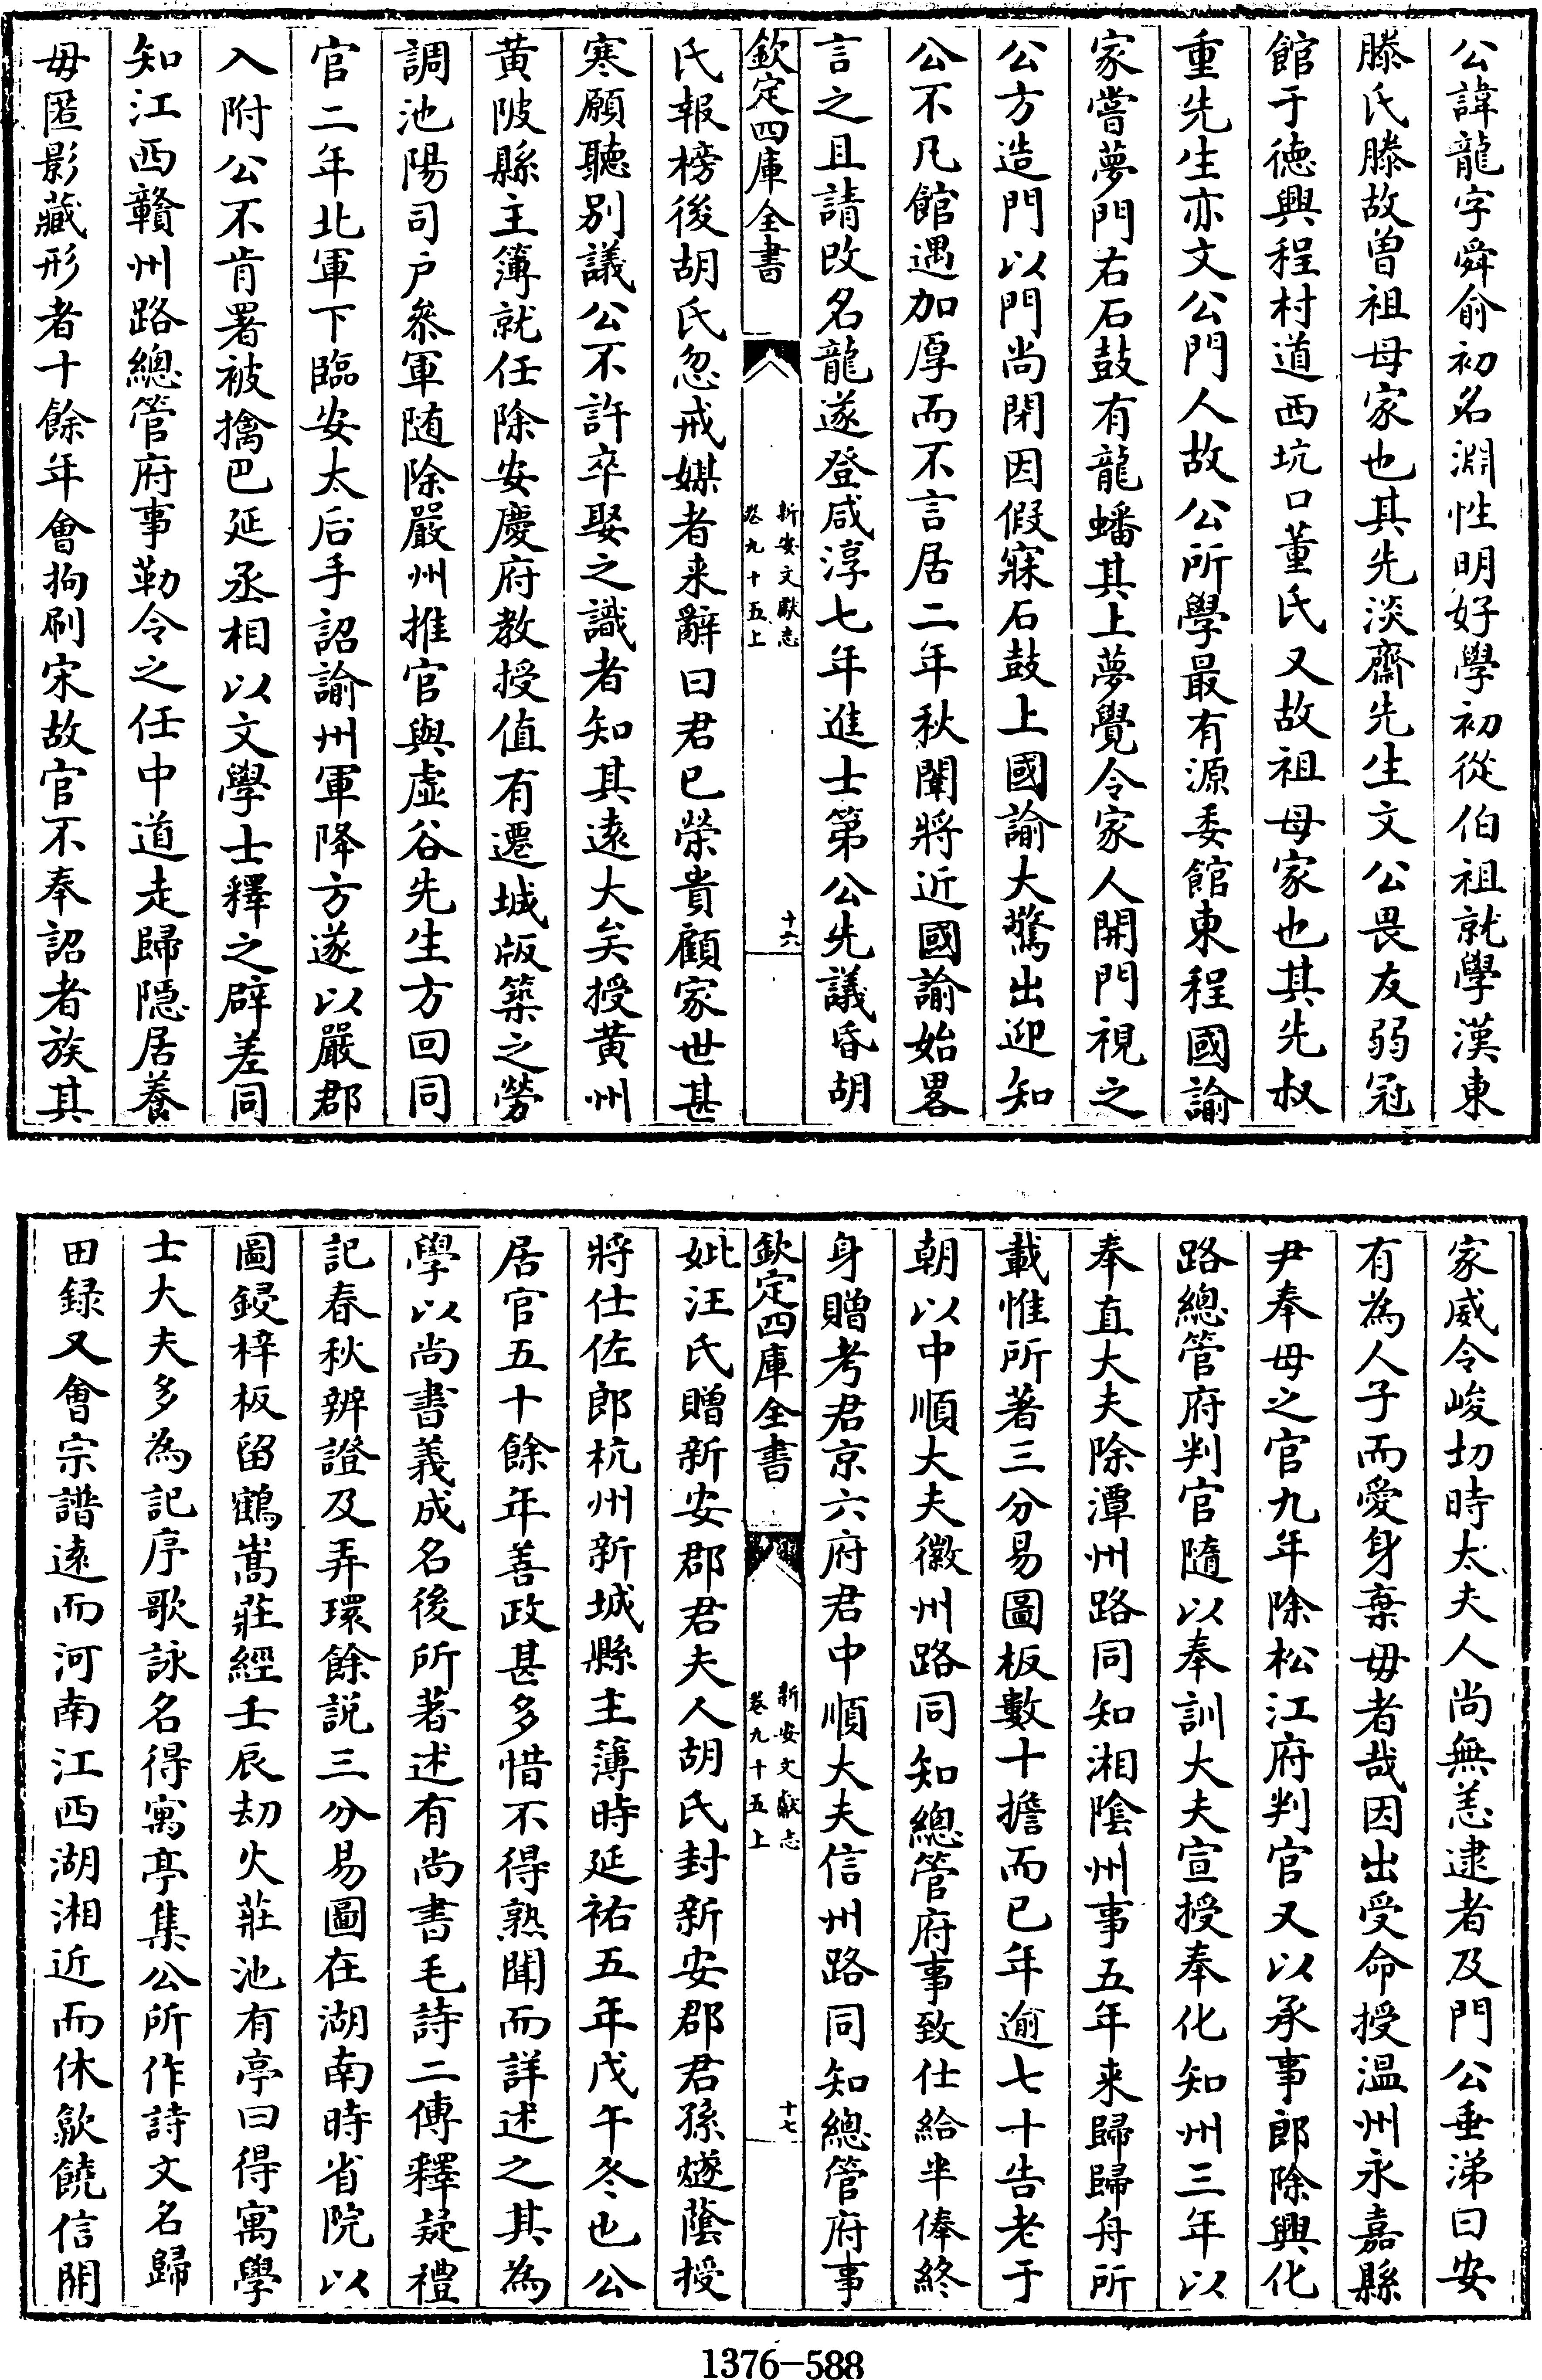 公諱龍字舜俞初名淵性明好學初從伯祖就學漢東
滕氏滕故曽祖母家也其先淡齋先生文公畏友弱冠
館于徳興程村道西坑口董氏又故祖母家也其先叔
重先生亦文公門人故公所學最有源委館東程國諭
家嘗夢門右石鼓有龍蟠其上夢覺令家人開門視之
公方造門以門尚閉因假寐石鼓上國諭大驚出迎知
公不凡館遇加厚而不言居二年秋闈將近國諭始畧
言之且請改名龍遂登咸淳七年進士第公先議昏胡
欽定四庫全書
新安文獻志
卷九十五上
十六
氏報榜後胡氏忽戒媒者来辭曰君已榮貴顧家世甚
寒願聽别議公不許卒娶之識者知其逺大矣授黄州
黄陂縣主簿就任除安慶府教授值有遷城版築之勞
調池陽司户叅軍随除嚴州推官與虚谷先生方回同
官二年北軍下臨安太后手詔諭州軍降方遂以嚴郡
入附公不肯署被擒巴延丞相以文學士釋之辟差同
知江西贛州路總管府事勒令之任中道走歸隠居養
毋匿影藏形者十餘年會拘刷宋故官不奉詔者族其
家威令峻切時太夫人尚無恙逮者及門公垂涕曰安
有為人子而愛身棄毋者哉因出受命授温州永嘉縣
尹奉母之官九年除松江府判官又以承事郎除興化
路總管府判官隨以奉訓大夫宣授奉化知州三年以
奉直大夫除潭州路同知湘隂州事五年来歸歸舟所
載惟所著三分易圖板數十擔而已年逾七十告老于
朝以中順大夫徽州路同知總管府事致仕給半俸終
身贈考君京六府君中順大夫信州路同知總管府事
欽定四庫全書
新安文獻志
卷九十五上
十七
妣汪氏贈新安郡君夫人胡氏封新安郡君孫燧蔭授
將仕佐郎杭州新城縣主簿時延祐五年戊午冬也公
居官五十餘年善政甚多惜不得熟聞而詳述之其為
學以尚書義成名後所著述有尚書毛詩二傳釋疑禮
記春秋辨證及弄環餘説三分易圖在湖南時省院以
圖鋟梓板留鶴嵩莊經壬辰刼火莊池有亭曰得寓學
士大夫多為記序歌詠名得寓亭集公所作詩文名歸
田録又會宗譜逺而河南江西湖湘近而休歙饒信開
1376-588